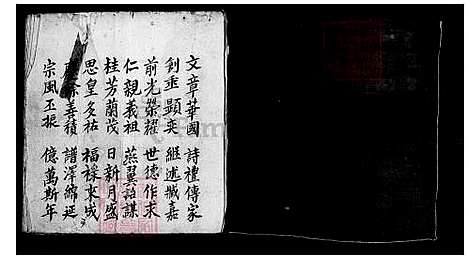 文章華國 詩禮傳家
創垂顯奕 繼述臧嘉
前光榮耀 世德作求
仁親義祖 燕翼詒謀
桂芳蘭茂 日新月盛
思皇多祐 福祿來成
餘善積 譜澤綿延
宗風丕振 億萬斯年